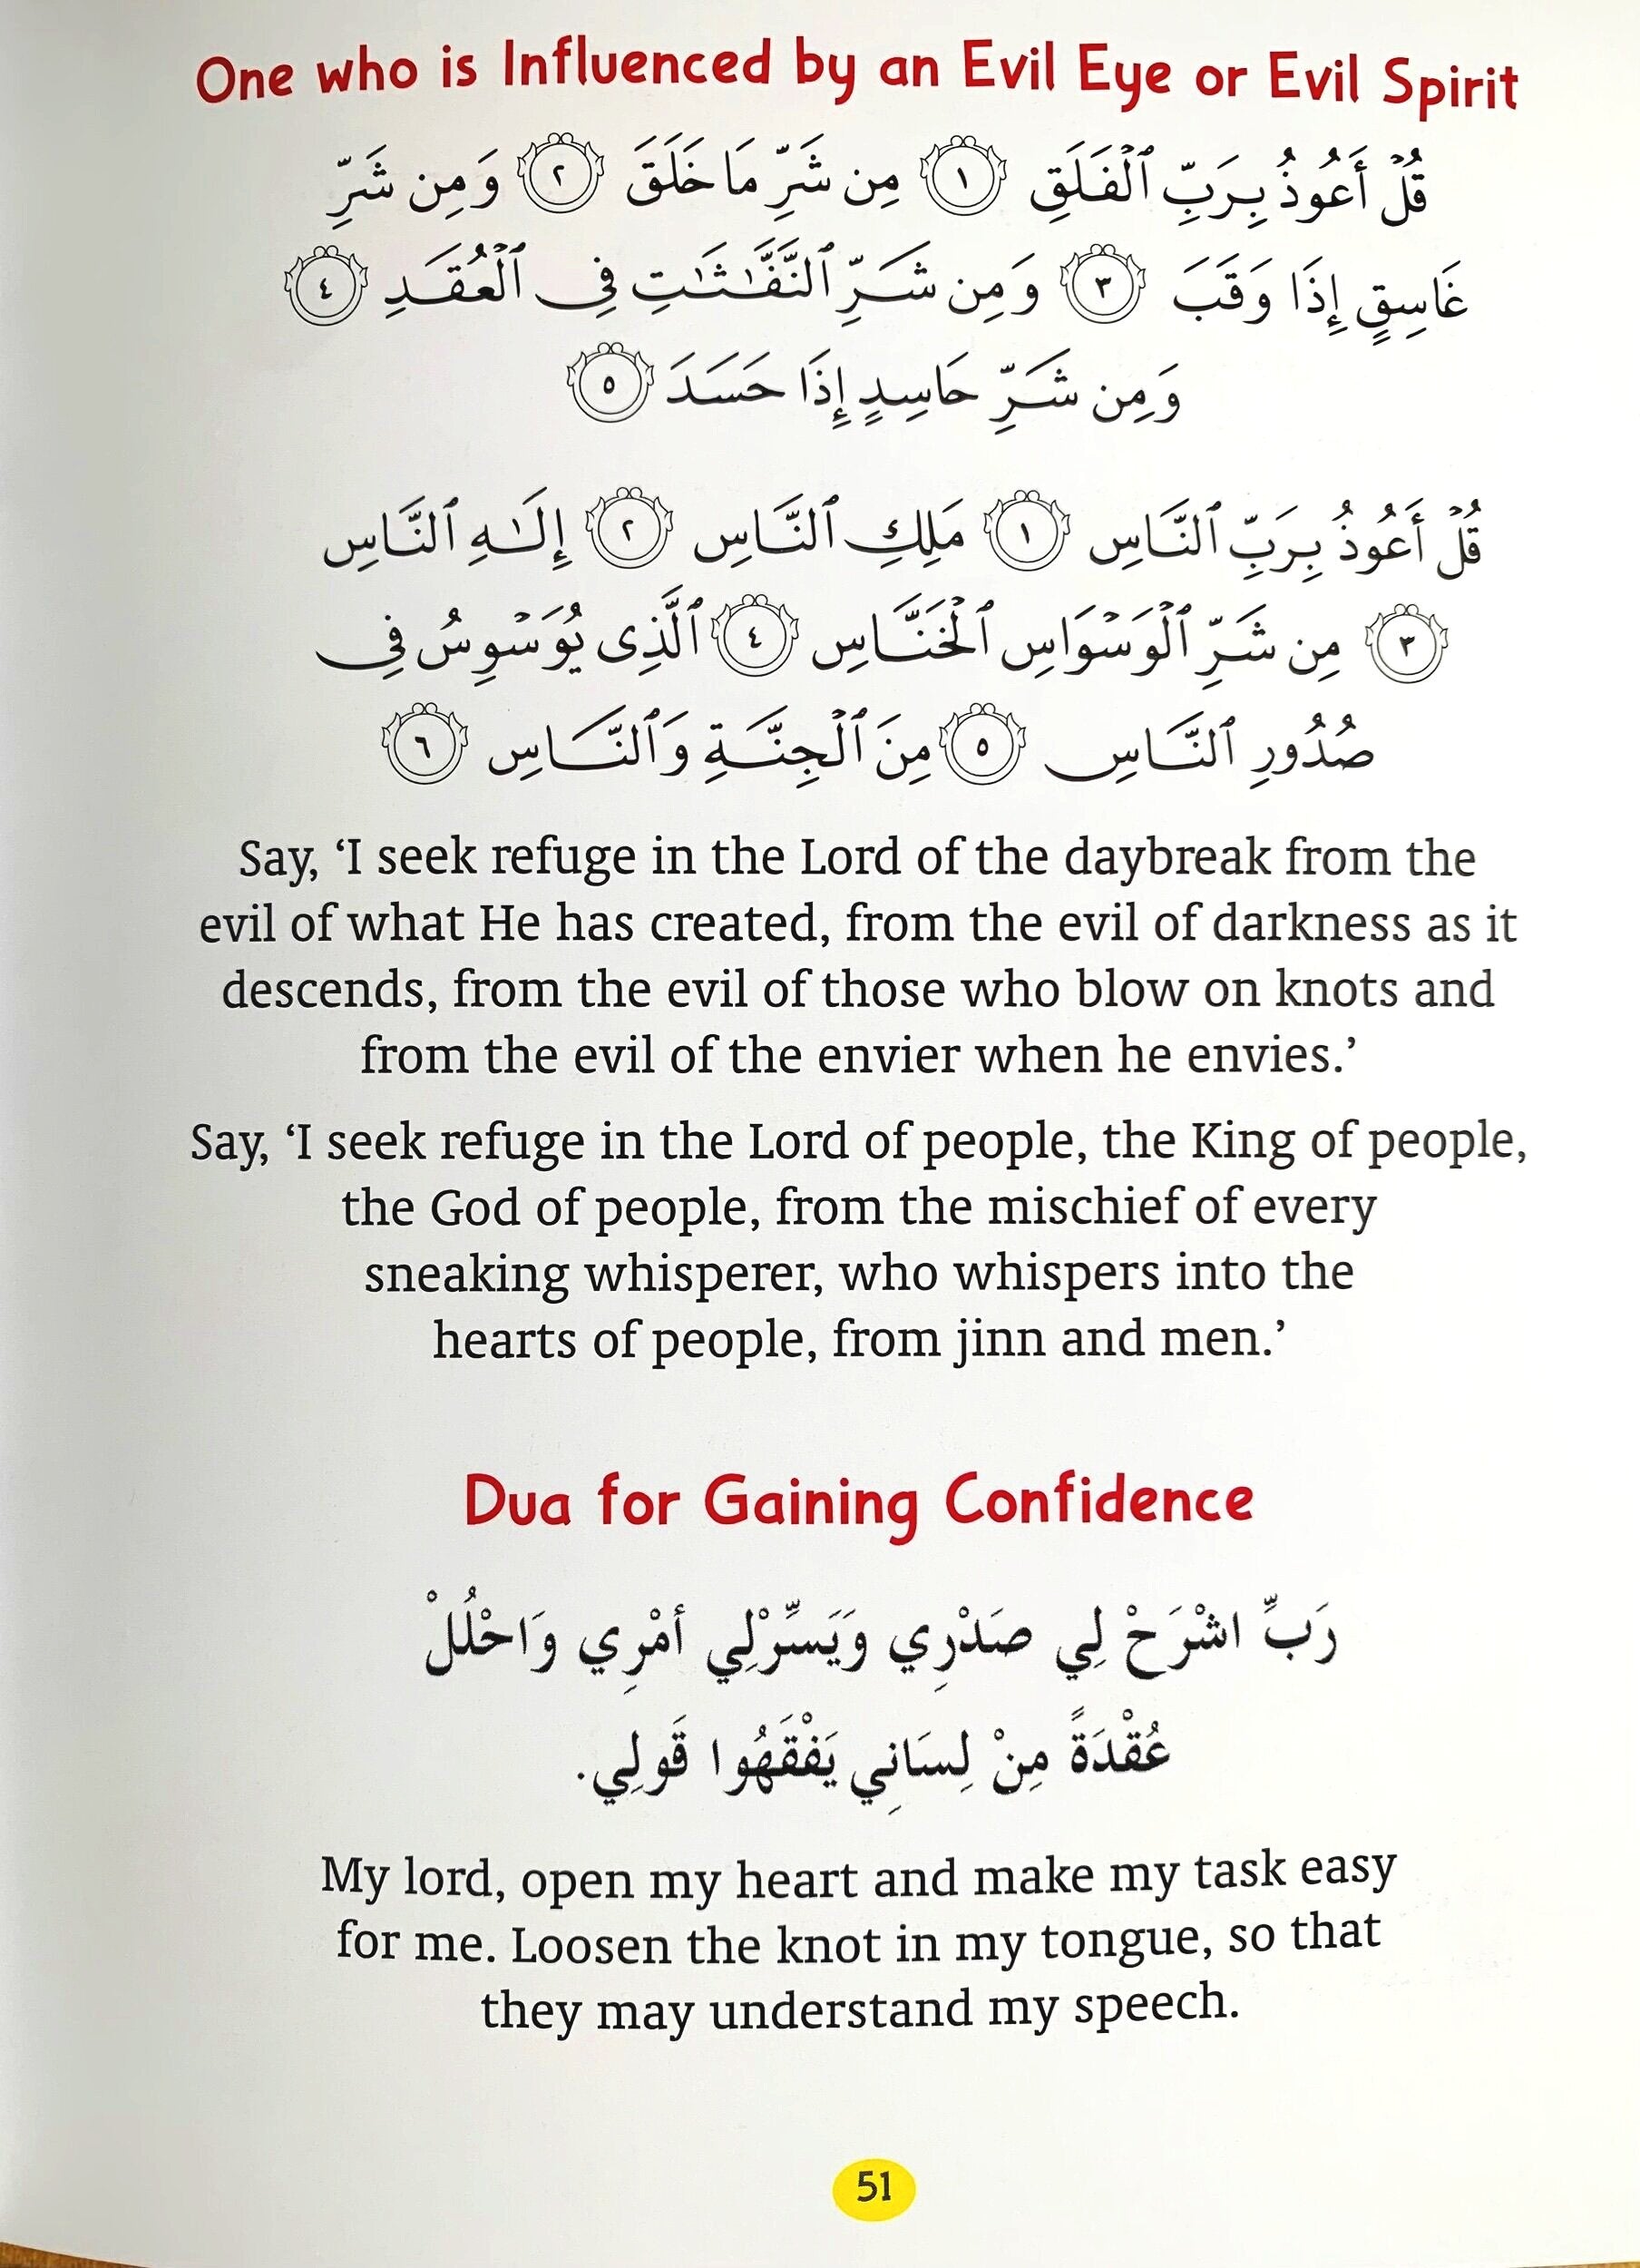 One who is Influenced by an Evil Eye or Evil Spirit
قُلۡ أَعُوذُ بِرَبِّ ٱلۡفَلَقِ ١ مِن شَرِّ مَا خَلَقَ ٢ وَمِن شَرِّ
غَاسِقٍ إِذَا وَقَبَ ٣ وَمِن شَرِّ ٱلنَّفَّٰثَٰتِ فِى ٱلۡعُقَدِ ٤
وَمِن شَرِّ حَاسِدٍ إِذَا حَسَدَ ٥
قُلۡ أَعُوذُ بِرَبِّ ٱلنَّاسِ ١ مَلِكِ ٱلنَّاسِ ٢ إِلَٰهِ ٱلنَّاسِ
٣ مِن شَرِّ ٱلۡوَسۡوَاسِ ٱلۡخَنَّاسِ ٤ ٱلَّذِى يُوَسۡوِسُ فِى
صُدُورِ ٱلنَّاسِ ٥ مِنَ ٱلۡجِنَّةِ وَٱلنَّاسِ ٦
Say, ‘I seek refuge in the Lord of the daybreak from the
evil of what He has created, from the evil of darkness as it
descends, from the evil of those who blow on knots and
from the evil of the envier when he envies.’
Say, ‘I seek refuge in the Lord of people, the King of people,
the God of people, from the mischief of every
sneaking whisperer, who whispers into the
hearts of people, from jinn and men.’
Dua for Gaining Confidence
رَبِّ اشْرَحْ لِي صَدْرِي وَيَسِّرْلِي أمْرِي وَاحْلُلْ
عُقْدَةً مِنْ لِسَانِي يَفْقَهُوا قَولِي.
My lord, open my heart and make my task easy
for me. Loosen the knot in my tongue, so that
they may understand my speech.
51